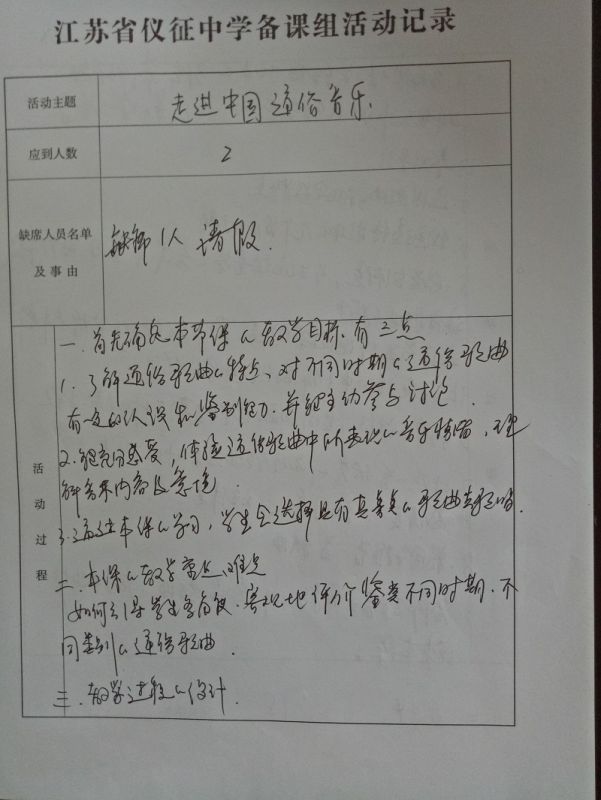 江苏省仪征中学备课组活动记录
活动主题
走进中国通俗音乐
应到人数
2
缺席人员名单
及事由
缺席1人 请假.
活动过程
一.首先确定本节课的教学目标.有三点
1.了解通俗歌曲的特点、对不同时期的通俗歌曲
有一定的认识和鉴别能力.并能主动参与讨论.
2.能充分感受,体验通俗歌曲中所表现的音乐情绪,理
解音乐内容及意境
3.通过本课的学习,学生会选择具有真善美的歌曲去歌唱.
二.本课的教学重点难点
如何引导学生客观地评价鉴赏不同时期.不
同类别的通俗歌曲.
三.教学过程的设计.